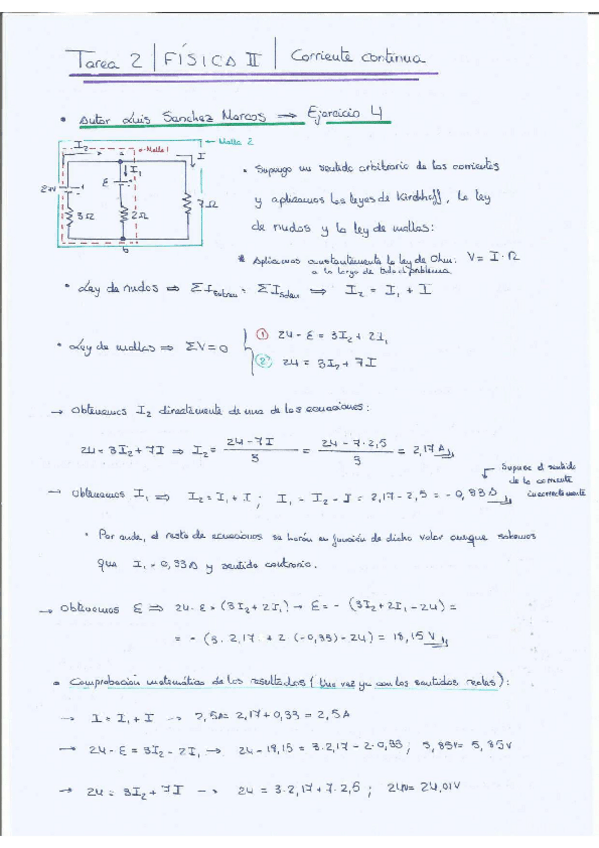 Tarea 2 | FÍSICA II | Corriente continua
• Autor Luis Sanchez Marcos ⟹ Ejercicio 4
I₂ Malla 1 I ← Malla 2
24V ε I₁
3Ω 2Ω 7Ω
b
• Supongo un sentido arbitrario de las corrientes
y aplicamos las leyes de Kirchhoff, la ley
de nudos y la ley de mallas:
* Aplicamos constantemente la ley de Ohm: V = I·Ω
a lo largo de todo el problema
• Ley de nudos ⟹ ΣI = ΣI ⟹ I₂ = I₁ + I
• Ley de mallas ⟹ ΣV = 0
① 24 - ε = 3I₂ + 2I₁
② 24 = 3I₂ + 7I
→ Obtenemos I₂ directamente de una de las ecuaciones:
24 = 3I₂ + 7I ⟹ I₂ = (24 - 7I)/3 = (24 - 7·2,5)/3 = 2,17 A
Supuse el sentido
de la corriente
incorrectamente
→ Obtenemos I₁ ⟹ I₂ = I₁ + I ; I₁ = I₂ - I = 2,17 - 2,5 = -0,33 A
• Por ende, el resto de ecuaciones se harán en función de dicho valor aunque sabemos
que I₁ = 0,33A y sentido contrario.
→ Obtenemos ε ⟹ 24 - ε = (3I₂ + 2I₁) → ε = - (3I₂ + 2I₁ - 24) =
= - (3·2,17 + 2·(-0,33) - 24) = 18,15 V
• Comprobación matemática de los resultados (Una vez ya con los sentidos reales):
→ I = I₁ + I → 2,5A = 2,17 + 0,33 = 2,5A
→ 24 - ε = 3I₂ - 2I₁ → 24 - 18,15 = 3·2,17 - 2·0,33 ; 5,85V = 5,85V
→ 24 = 3I₂ + 7I → 24 = 3·2,17 + 7·2,5 ; 24V = 24,01V